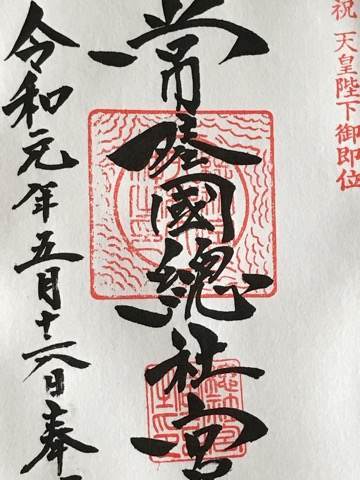 祝 天皇陛下御即位
常陸國總社宮
令和元年五月十六日奉